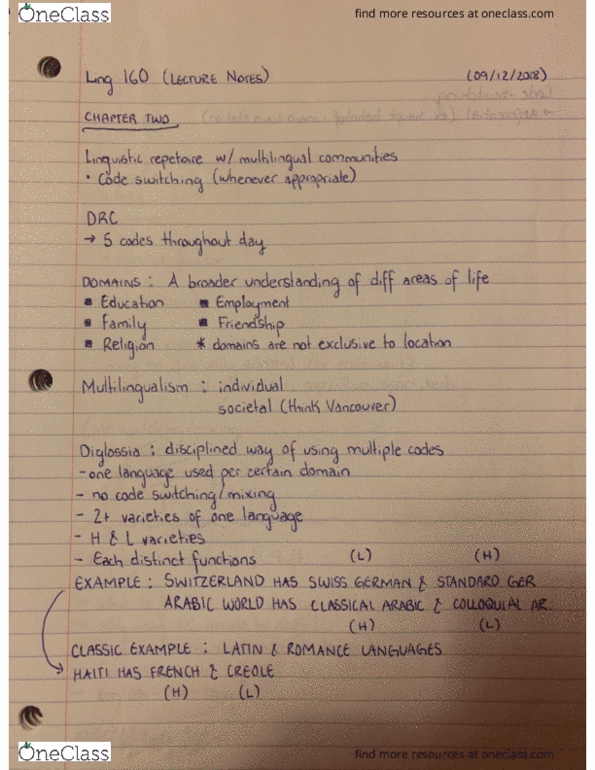 OneClass
find more resources at oneclass.com
Ling 160 (LECTURE NOTES) (09/12/2018)
CHAPTER TWO
Linguistic repetoire w/ multilingual communities
• Code switching (whenever appropriate)
DRC
→ 5 codes throughout day
DOMAINS : A broader understanding of diff areas of life
▪ Education ▪ Employment
▪ Family ▪ Friendship
▪ Religion * domains are not exclusive to location
Multilingualism : individual
societal (think Vancouver)
Diglossia : disciplined way of using multiple codes
- one language used per certain domain
- no code switching/mixing
- 2+ varieties of one language
- H & L varieties
- Each distinct functions (L) (H)
EXAMPLE : SWITZERLAND HAS SWISS GERMAN & STANDARD GER
ARABIC WORLD HAS CLASSICAL ARABIC & COLLOQUIAL AR.
(H) (L)
CLASSIC EXAMPLE : LATIN & ROMANCE LANGUAGES
HAITI HAS FRENCH & CREOLE
(H) (L)
OneClass
find more resources at oneclass.com